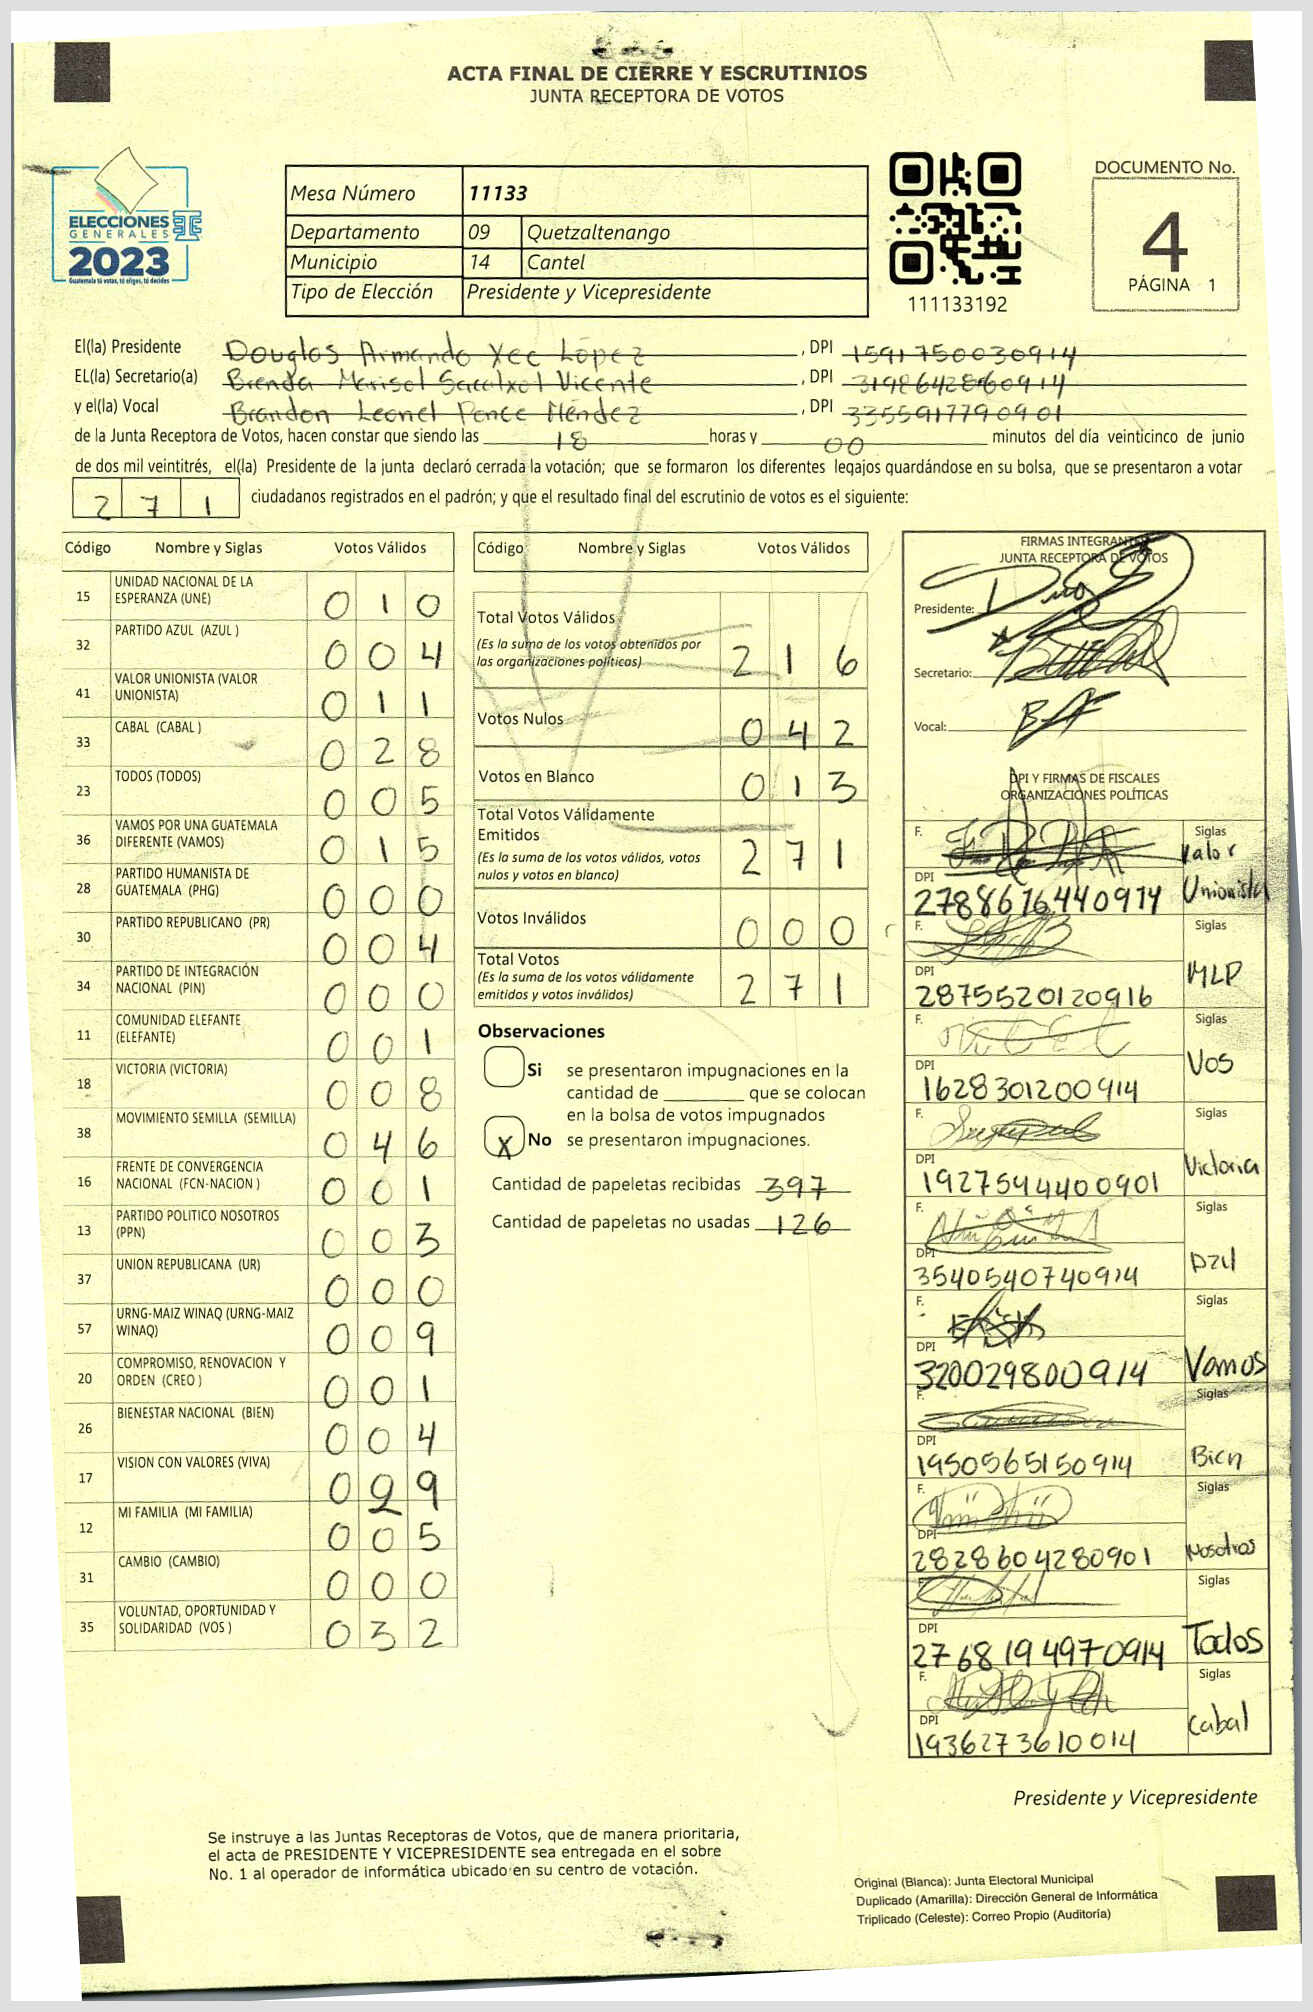 ACTA FINAL DE CIERRE Y ESCRUTINIOS
JUNTA RECEPTORA DE VOTOS
ELECCIONES
GENERALES
2023
Guatemala tú votas, tú eliges, tú decides
Mesa Número 11133
Departamento 09 Quetzaltenango
Municipio 14 Cantel
Tipo de Elección Presidente y Vicepresidente
111133192
DOCUMENTO No.
4
PÁGINA 1
El(la) Presidente Douglas Armando Xec López , DPI 1591750030914
EL(la) Secretario(a) Brenda Marisol Sacalxot Vicente , DPI 3198642860914
y el(la) Vocal Brandon Leonel Ponce Méndez , DPI 3355917790901
de la Junta Receptora de Votos, hacen constar que siendo las 18 horas y 00 minutos del día veinticinco de junio
de dos mil veintitrés, el(la) Presidente de la junta declaró cerrada la votación; que se formaron los diferentes legajos guardándose en su bolsa, que se presentaron a votar
271 ciudadanos registrados en el padrón; y que el resultado final del escrutinio de votos es el siguiente:
Código Nombre y Siglas Votos Válidos
15 UNIDAD NACIONAL DE LA ESPERANZA (UNE) 010
32 PARTIDO AZUL (AZUL ) 004
41 VALOR UNIONISTA (VALOR UNIONISTA) 011
33 CABAL (CABAL ) 028
23 TODOS (TODOS) 005
36 VAMOS POR UNA GUATEMALA DIFERENTE (VAMOS) 015
28 PARTIDO HUMANISTA DE GUATEMALA (PHG) 000
30 PARTIDO REPUBLICANO (PR) 004
34 PARTIDO DE INTEGRACIÓN NACIONAL (PIN) 000
11 COMUNIDAD ELEFANTE (ELEFANTE) 001
18 VICTORIA (VICTORIA) 008
38 MOVIMIENTO SEMILLA (SEMILLA) 046
16 FRENTE DE CONVERGENCIA NACIONAL (FCN-NACION ) 001
13 PARTIDO POLITICO NOSOTROS (PPN) 003
37 UNION REPUBLICANA (UR) 000
57 URNG-MAIZ WINAQ (URNG-MAIZ WINAQ) 009
20 COMPROMISO, RENOVACION Y ORDEN (CREO ) 001
26 BIENESTAR NACIONAL (BIEN) 004
17 VISION CON VALORES (VIVA) 029
12 MI FAMILIA (MI FAMILIA) 005
31 CAMBIO (CAMBIO) 000
35 VOLUNTAD, OPORTUNIDAD Y SOLIDARIDAD (VOS ) 032
Código Nombre y Siglas Votos Válidos
Total Votos Válidos 216
(Es la suma de los votos obtenidos por
las organizaciones políticas)
Votos Nulos 042
Votos en Blanco 013
Total Votos Válidamente
Emitidos 271
(Es la suma de los votos válidos, votos
nulos y votos en blanco)
Votos Inválidos 000
Total Votos 271
(Es la suma de los votos válidamente
emitidos y votos inválidos)
Observaciones
Si se presentaron impugnaciones en la
cantidad de ________ que se colocan
en la bolsa de votos impugnados
X No se presentaron impugnaciones.
Cantidad de papeletas recibidas 397
Cantidad de papeletas no usadas 126
FIRMAS INTEGRANTES
JUNTA RECEPTORA DE VOTOS
Presidente:
Secretario:
Vocal:
DPI Y FIRMAS DE FISCALES
ORGANIZACIONES POLÍTICAS
F. Siglas
Valor
Unionista
DPI
2788616440914
F. Siglas
MLP
DPI
2875520120916
F. Siglas
VOS
DPI
1628301200914
F. Siglas
Victoria
DPI
1927544400901
F. Siglas
Azul
DPI
3540540740914
F. Siglas
Vamos
DPI
320029800914
F. Siglas
Bien
DPI
1950565150914
F. Siglas
Nosotros
DPI
2828604280901
F. Siglas
Todos
DPI
2768194970914
F. Siglas
Cabal
DPI
1936273610014
Presidente y Vicepresidente
Se instruye a las Juntas Receptoras de Votos, que de manera prioritaria,
el acta de PRESIDENTE Y VICEPRESIDENTE sea entregada en el sobre
No. 1 al operador de informática ubicado en su centro de votación.
Original (Blanca): Junta Electoral Municipal
Duplicado (Amarilla): Dirección General de Informática
Triplicado (Celeste): Correo Propio (Auditoría)